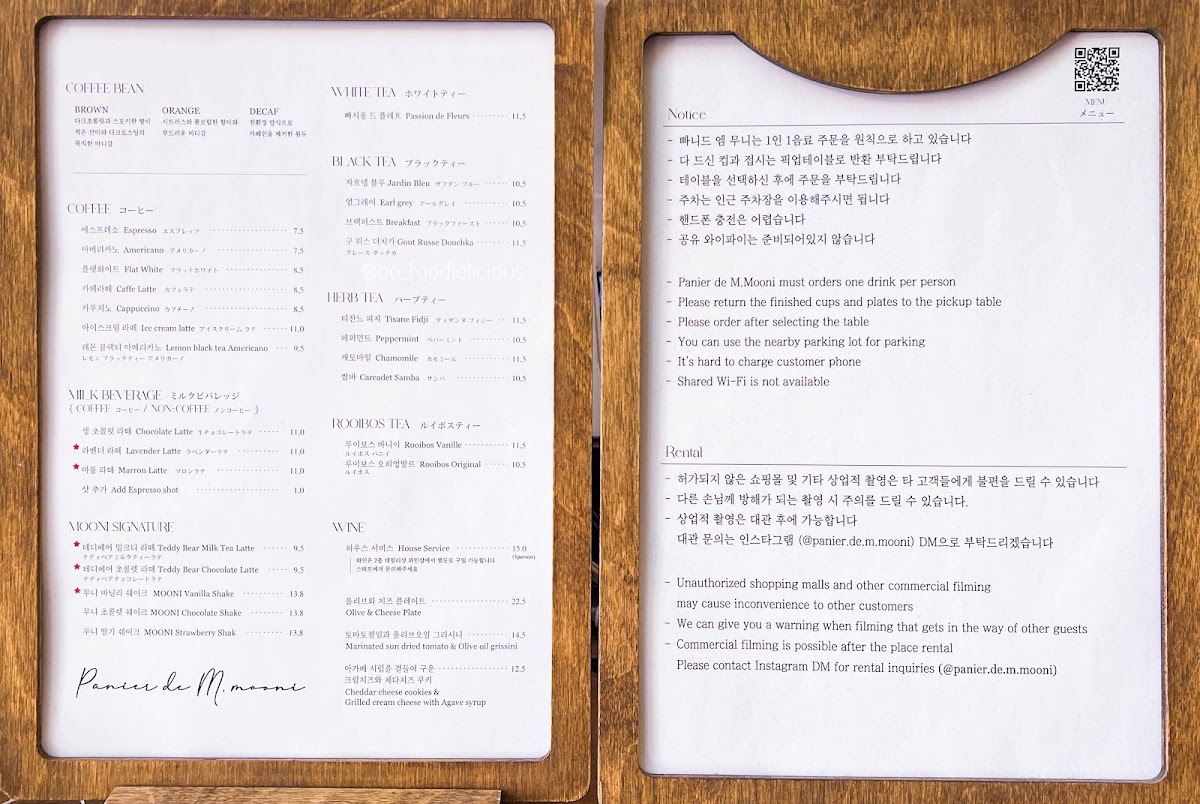 COFFEE BEAN
BROWN
다크초콜릿과 스모키한 향미
적은 산미와 다크로스팅의
묵직한 바디감
ORANGE
시트러스와 플로럴한 향미와
부드러운 바디감
DECAF
친환경 방식으로
카페인을 제거한 원두
COFFEE コーヒー
에스프레소 Espresso エスプレッソ 7.5
아메리카노 Americano アメリカーノ 7.5
플랫화이트 Flat White フラットホワイト 8.5
카페라떼 Caffe Latte カフェラテ 8.5
카푸치노 Cappuccino カプチーノ 8.5
아이스크림 라떼 Ice cream latte アイスクリーム ラテ 11.0
레몬 블랙티 아메리카노 Lemon black tea Americano 9.5
レモン ブラックティー アメリカーノ
MILK BEVERAGE ミルクビバレッジ
{ COFFEE コーヒー / NON-COFFEE ノンコーヒー }
생 초콜릿 라떼 Chocolate Latte 生チョコレートラテ 11.0
★ 라벤더 라떼 Lavender Latte ラベンダーラテ 11.0
★ 마롱 라떼 Marron Latte マロンラテ 11.0
샷 추가 Add Espresso shot 1.0
MOONI SIGNATURE
★ 테디베어 밀크티 라떼 Teddy Bear Milk Tea Latte 9.5
テディベアミルクティーラテ
★ 테디베어 초콜렛 라떼 Teddy Bear Chocolate Latte 9.5
テディベアチョコレートラテ
★ 무니 바닐라 쉐이크 MOONI Vanilla Shake 13.8
무니 초콜렛 쉐이크 MOONI Chocolate Shake 13.8
무니 딸기 쉐이크 MOONI Strawberry Shak 13.8
Panier de M. mooni
WHITE TEA ホワイトティー
빠시옹 드 플레흐 Passion de Fleurs 11.5
BLACK TEA ブラックティー
자흐뎅 블루 Jardin Bleu ザフデン ブルー 10.5
얼그레이 Earl grey アールグレイ 10.5
브랙퍼스트 Breakfast ブラックファースト 10.5
구 뤼스 더치카 Gout Russe Douchka 11.5
グレース ダッチカ
@oo_foodielicious
HERB TEA ハーブティー
티잔드 피지 Tisane Fidji ティザンヌ フィジー 11.5
페퍼민트 Peppermint ペパーミント 10.5
캐모마일 Chamomile カモミール 11.5
쌈바 Carcadet Samba サンバ 10.5
ROOIBOS TEA ルイボスティー
루이보스 바니이 Rooibos Vanille 11.5
ルイボス バニイ
루이보스 오히엉딸르 Rooibos Original 10.5
ルイボス
WINE
하우스 서비스 House Service 15.0
(1person)
와인은 2층 데일리샷 와인샵에서 별도로 구입 가능합니다
스태프에게 문의해주세요
올리브와 치즈 플레이트 22.5
Olive & Cheese Plate
토마토절임과 올리브오일 그리시니 14.5
Marinated sun dried tomato & Olive oil grissini
아가베 시럽을 곁들여 구운 12.5
크림치즈와 체다치즈 쿠키
Cheddar cheese cookies &
Grilled cream cheese with Agave syrup
MENU
メニュー
Notice
- 빠니드 엠 무니는 1인 1음료 주문을 원칙으로 하고 있습니다
- 다 드신 컵과 접시는 픽업테이블로 반환 부탁드립니다
- 테이블을 선택하신 후에 주문을 부탁드립니다
- 주차는 인근 주차장을 이용해주시면 됩니다
- 핸드폰 충전은 어렵습니다
- 공유 와이파이는 준비되어있지 않습니다
- Panier de M.Mooni must orders one drink per person
- Please return the finished cups and plates to the pickup table
- Please order after selecting the table
- You can use the nearby parking lot for parking
- It's hard to charge customer phone
- Shared Wi-Fi is not available
Rental
- 허가되지 않은 쇼핑몰 및 기타 상업적 촬영은 타 고객들에게 불편을 드릴 수 있습니다
- 다른 손님께 방해가 되는 촬영 시 주의를 드릴 수 있습니다.
- 상업적 촬영은 대관 후에 가능합니다
대관 문의는 인스타그램 (@panier.de.m.mooni) DM으로 부탁드리겠습니다
- Unauthorized shopping malls and other commercial filming
may cause inconvenience to other customers
- We can give you a warning when filming that gets in the way of other guests
- Commercial filming is possible after the place rental
Please contact Instagram DM for rental inquiries (@panier.de.m.mooni)